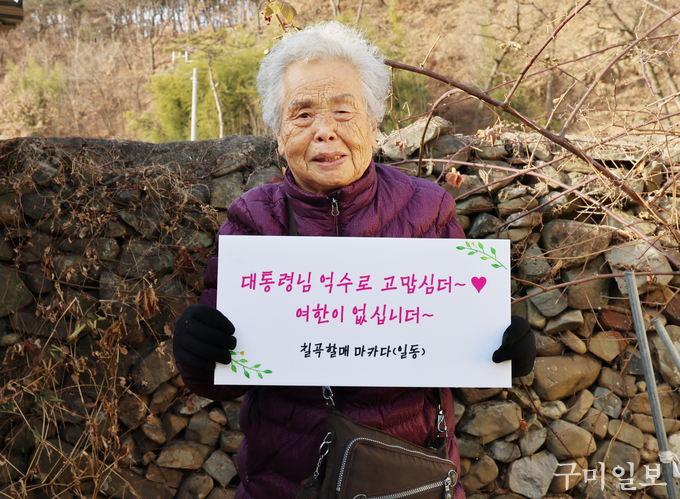 대통령님 억수로 고맙심더~♥
여한이 없십니더~
칠곡할매 마카다(일동)
구미일보